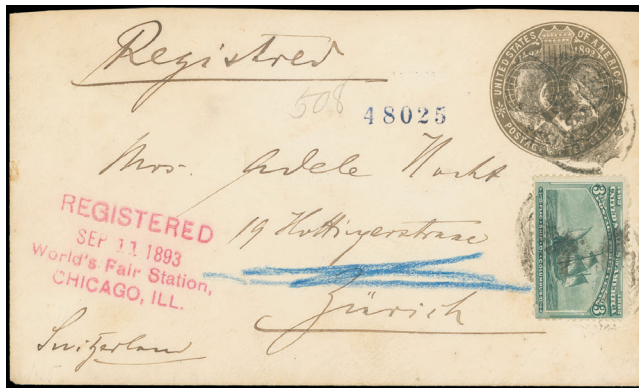 Registred
UNITED STATES OF AMERICA
1492 1892
POSTAGE
508
48025
Mrs. Adele Hockt
19 Hottingerstrasse
Zürich
Switzerland
REGISTERED
SEP 11 1893
World's Fair Station,
CHICAGO, ILL.
3 3